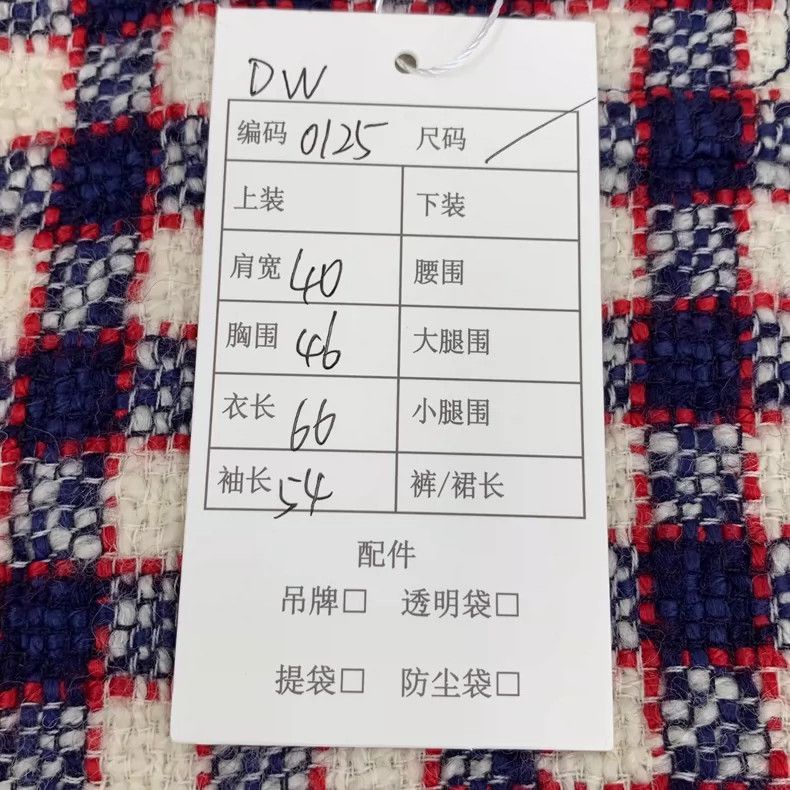 DW
编码 0125 尺码 /
上装 下装
肩宽 40 腰围
胸围 46 大腿围
衣长 66 小腿围
袖长 54 裤/裙长
配件
吊牌□ 透明袋□
提袋□ 防尘袋□